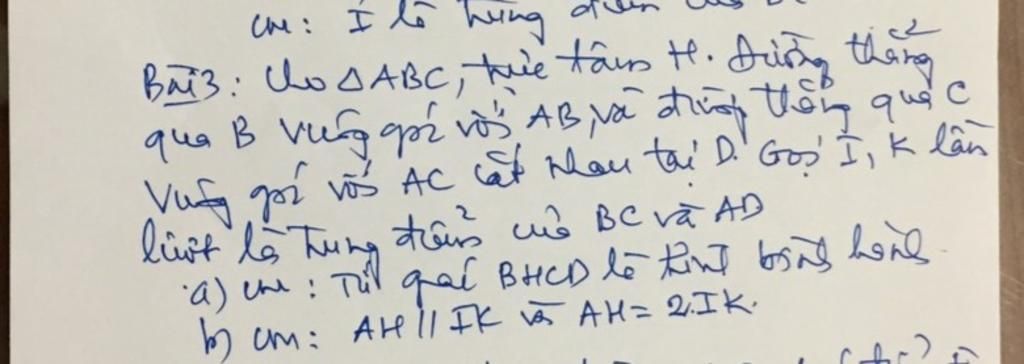 cm: I là trung điểm của
Bài 3: Cho △ABC, trực tâm H. Đường thẳng
qua B vuông góc với AB, và đường thẳng qua C
vuông góc với AC cắt nhau tại D. Gọi I, K lần
lượt là trung điểm của BC và AD
a) cm: Tứ giác BHCD là hình bình hành.
b) cm: AH // IK và AH = 2.IK.